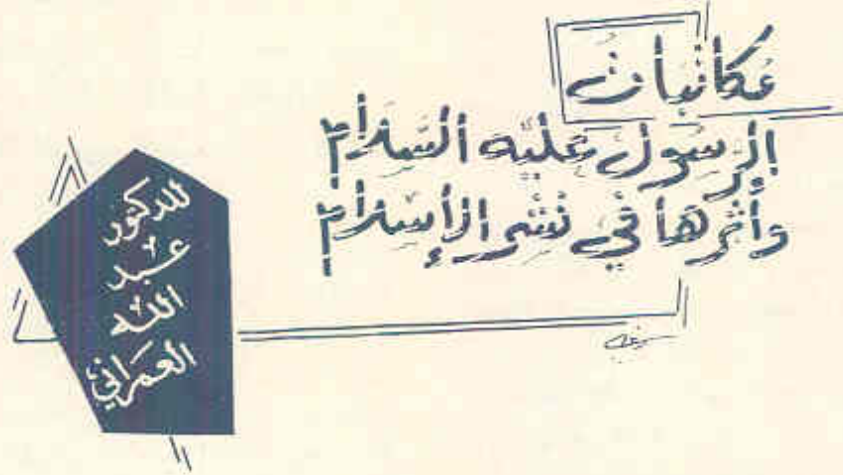 مكاتبات
الرسول عليه السلام
وأثرها في نشر الإسلام
للدكتور
عبد
الله
العمراني